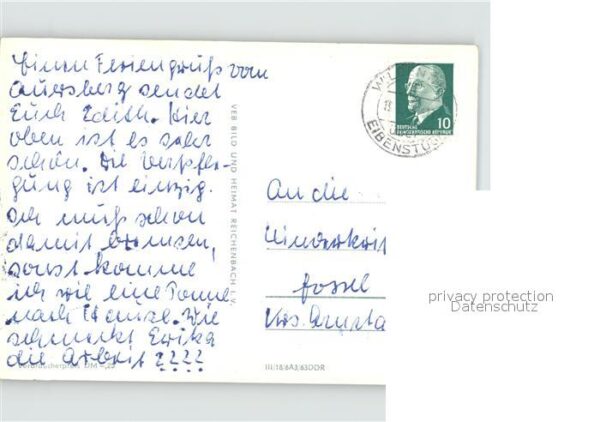 Einen Feriengruß vom
Auersberg sendet
Euch Edith. Hier
oben ist es sehr
schön. Die Verpfle-
gung ist einzig.
Ich muß schon
damit bremsen,
sonst komme
ich wie eine Tonne
nach Hause. Wie
schmeckt Erika
die Arbeit ????
VEB BILD UND HEIMAT REICHENBACH I. V.
DEUTSCHE
DEMOKRATISCHE REPUBLIK
10
EIBENSTOC
An die
Kinderkri
Krs. Arnsta
III/18/6 A3/63 DDR
privacy protection
Datenschutz